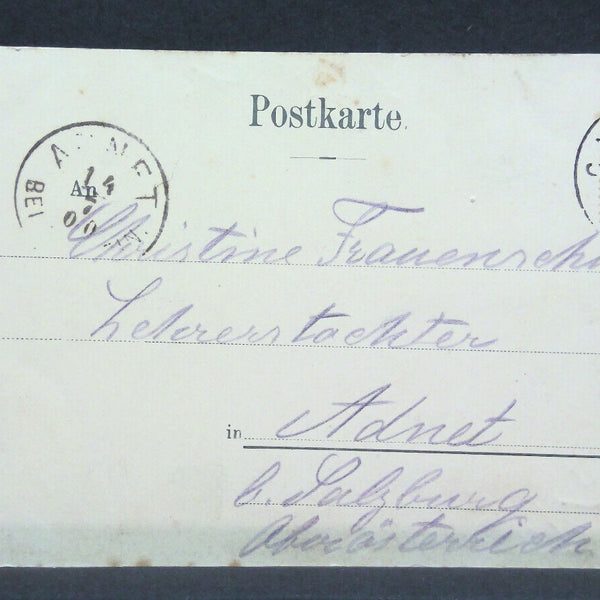 Postkarte.
ADNET
14
00
BEI
An
Christine Frauensch
Lehrerstochter
in Adnet
b. Salzburg
Oberösterreich